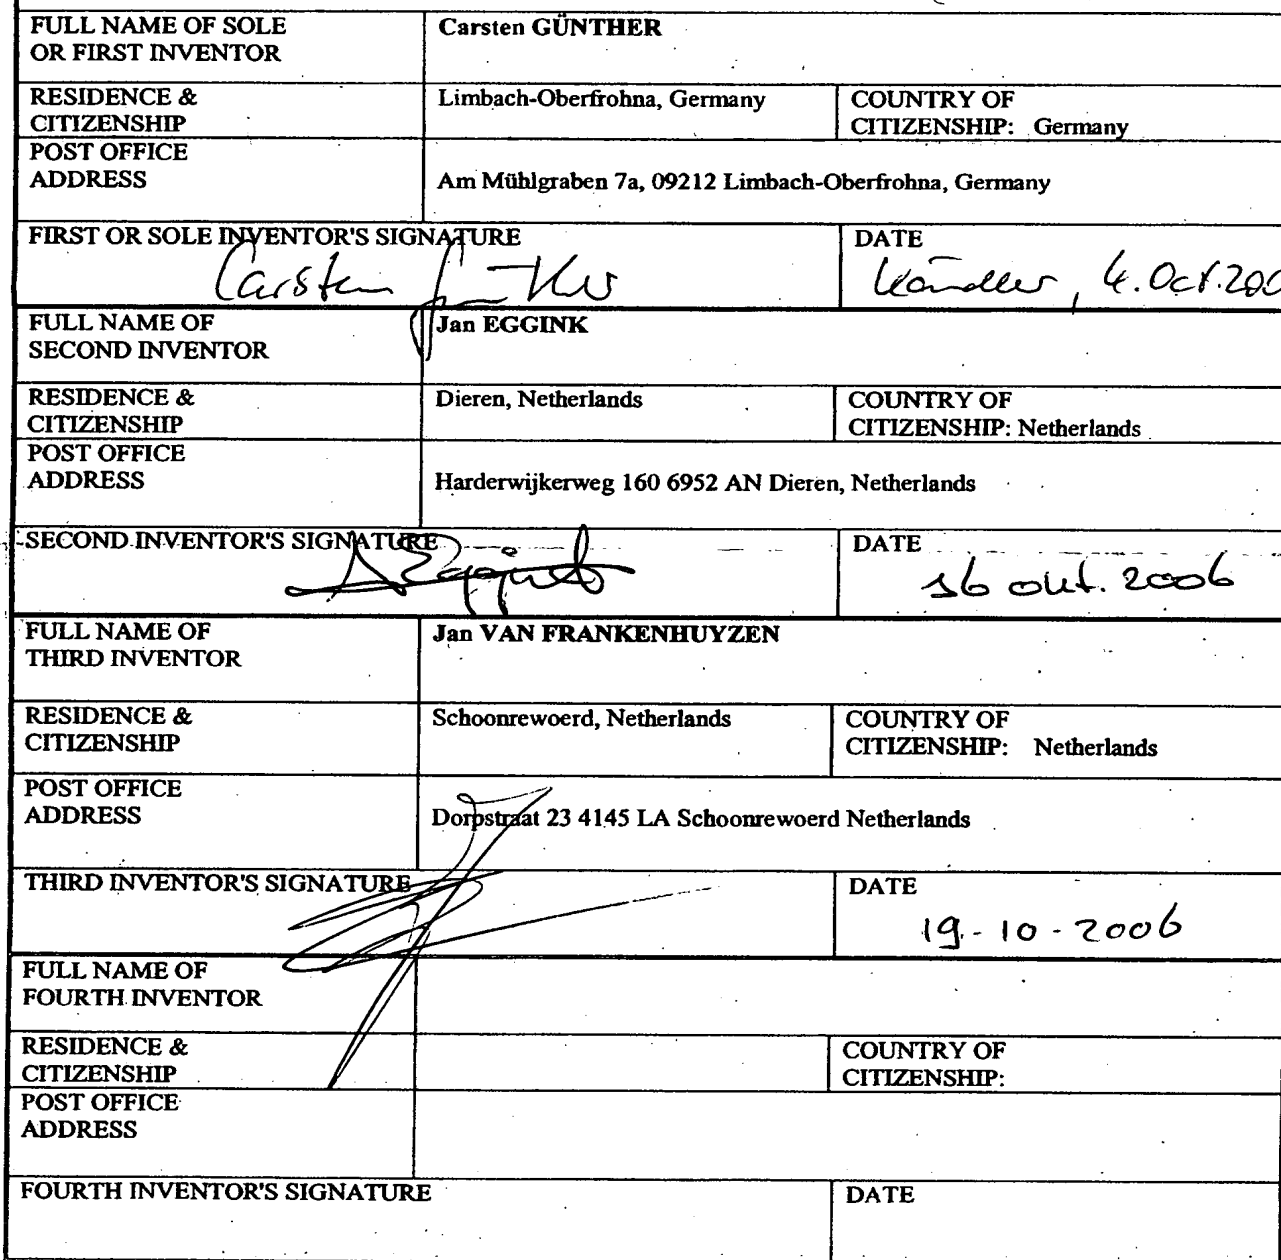 FULL NAME OF SOLE
OR FIRST INVENTOR
Carsten GÜNTHER
RESIDENCE &
CITIZENSHIP
Limbach-Oberfrohna, Germany
COUNTRY OF
CITIZENSHIP: Germany
POST OFFICE
ADDRESS
Am Mühlgraben 7a, 09212 Limbach-Oberfrohna, Germany
FIRST OR SOLE INVENTOR'S SIGNATURE
Carsten Günther
DATE
Kändler, 4. Oct. 200
FULL NAME OF
SECOND INVENTOR
Jan EGGINK
RESIDENCE &
CITIZENSHIP
Dieren, Netherlands
COUNTRY OF
CITIZENSHIP: Netherlands
POST OFFICE
ADDRESS
Harderwijkerweg 160 6952 AN Dieren, Netherlands
SECOND INVENTOR'S SIGNATURE
DATE
16 okt. 2006
FULL NAME OF
THIRD INVENTOR
Jan VAN FRANKENHUYZEN
RESIDENCE &
CITIZENSHIP
Schoonrewoerd, Netherlands
COUNTRY OF
CITIZENSHIP: Netherlands
POST OFFICE
ADDRESS
Dorpstraat 23 4145 LA Schoonrewoerd Netherlands
THIRD INVENTOR'S SIGNATURE
DATE
19-10-2006
FULL NAME OF
FOURTH INVENTOR
RESIDENCE &
CITIZENSHIP
COUNTRY OF
CITIZENSHIP:
POST OFFICE
ADDRESS
FOURTH INVENTOR'S SIGNATURE
DATE